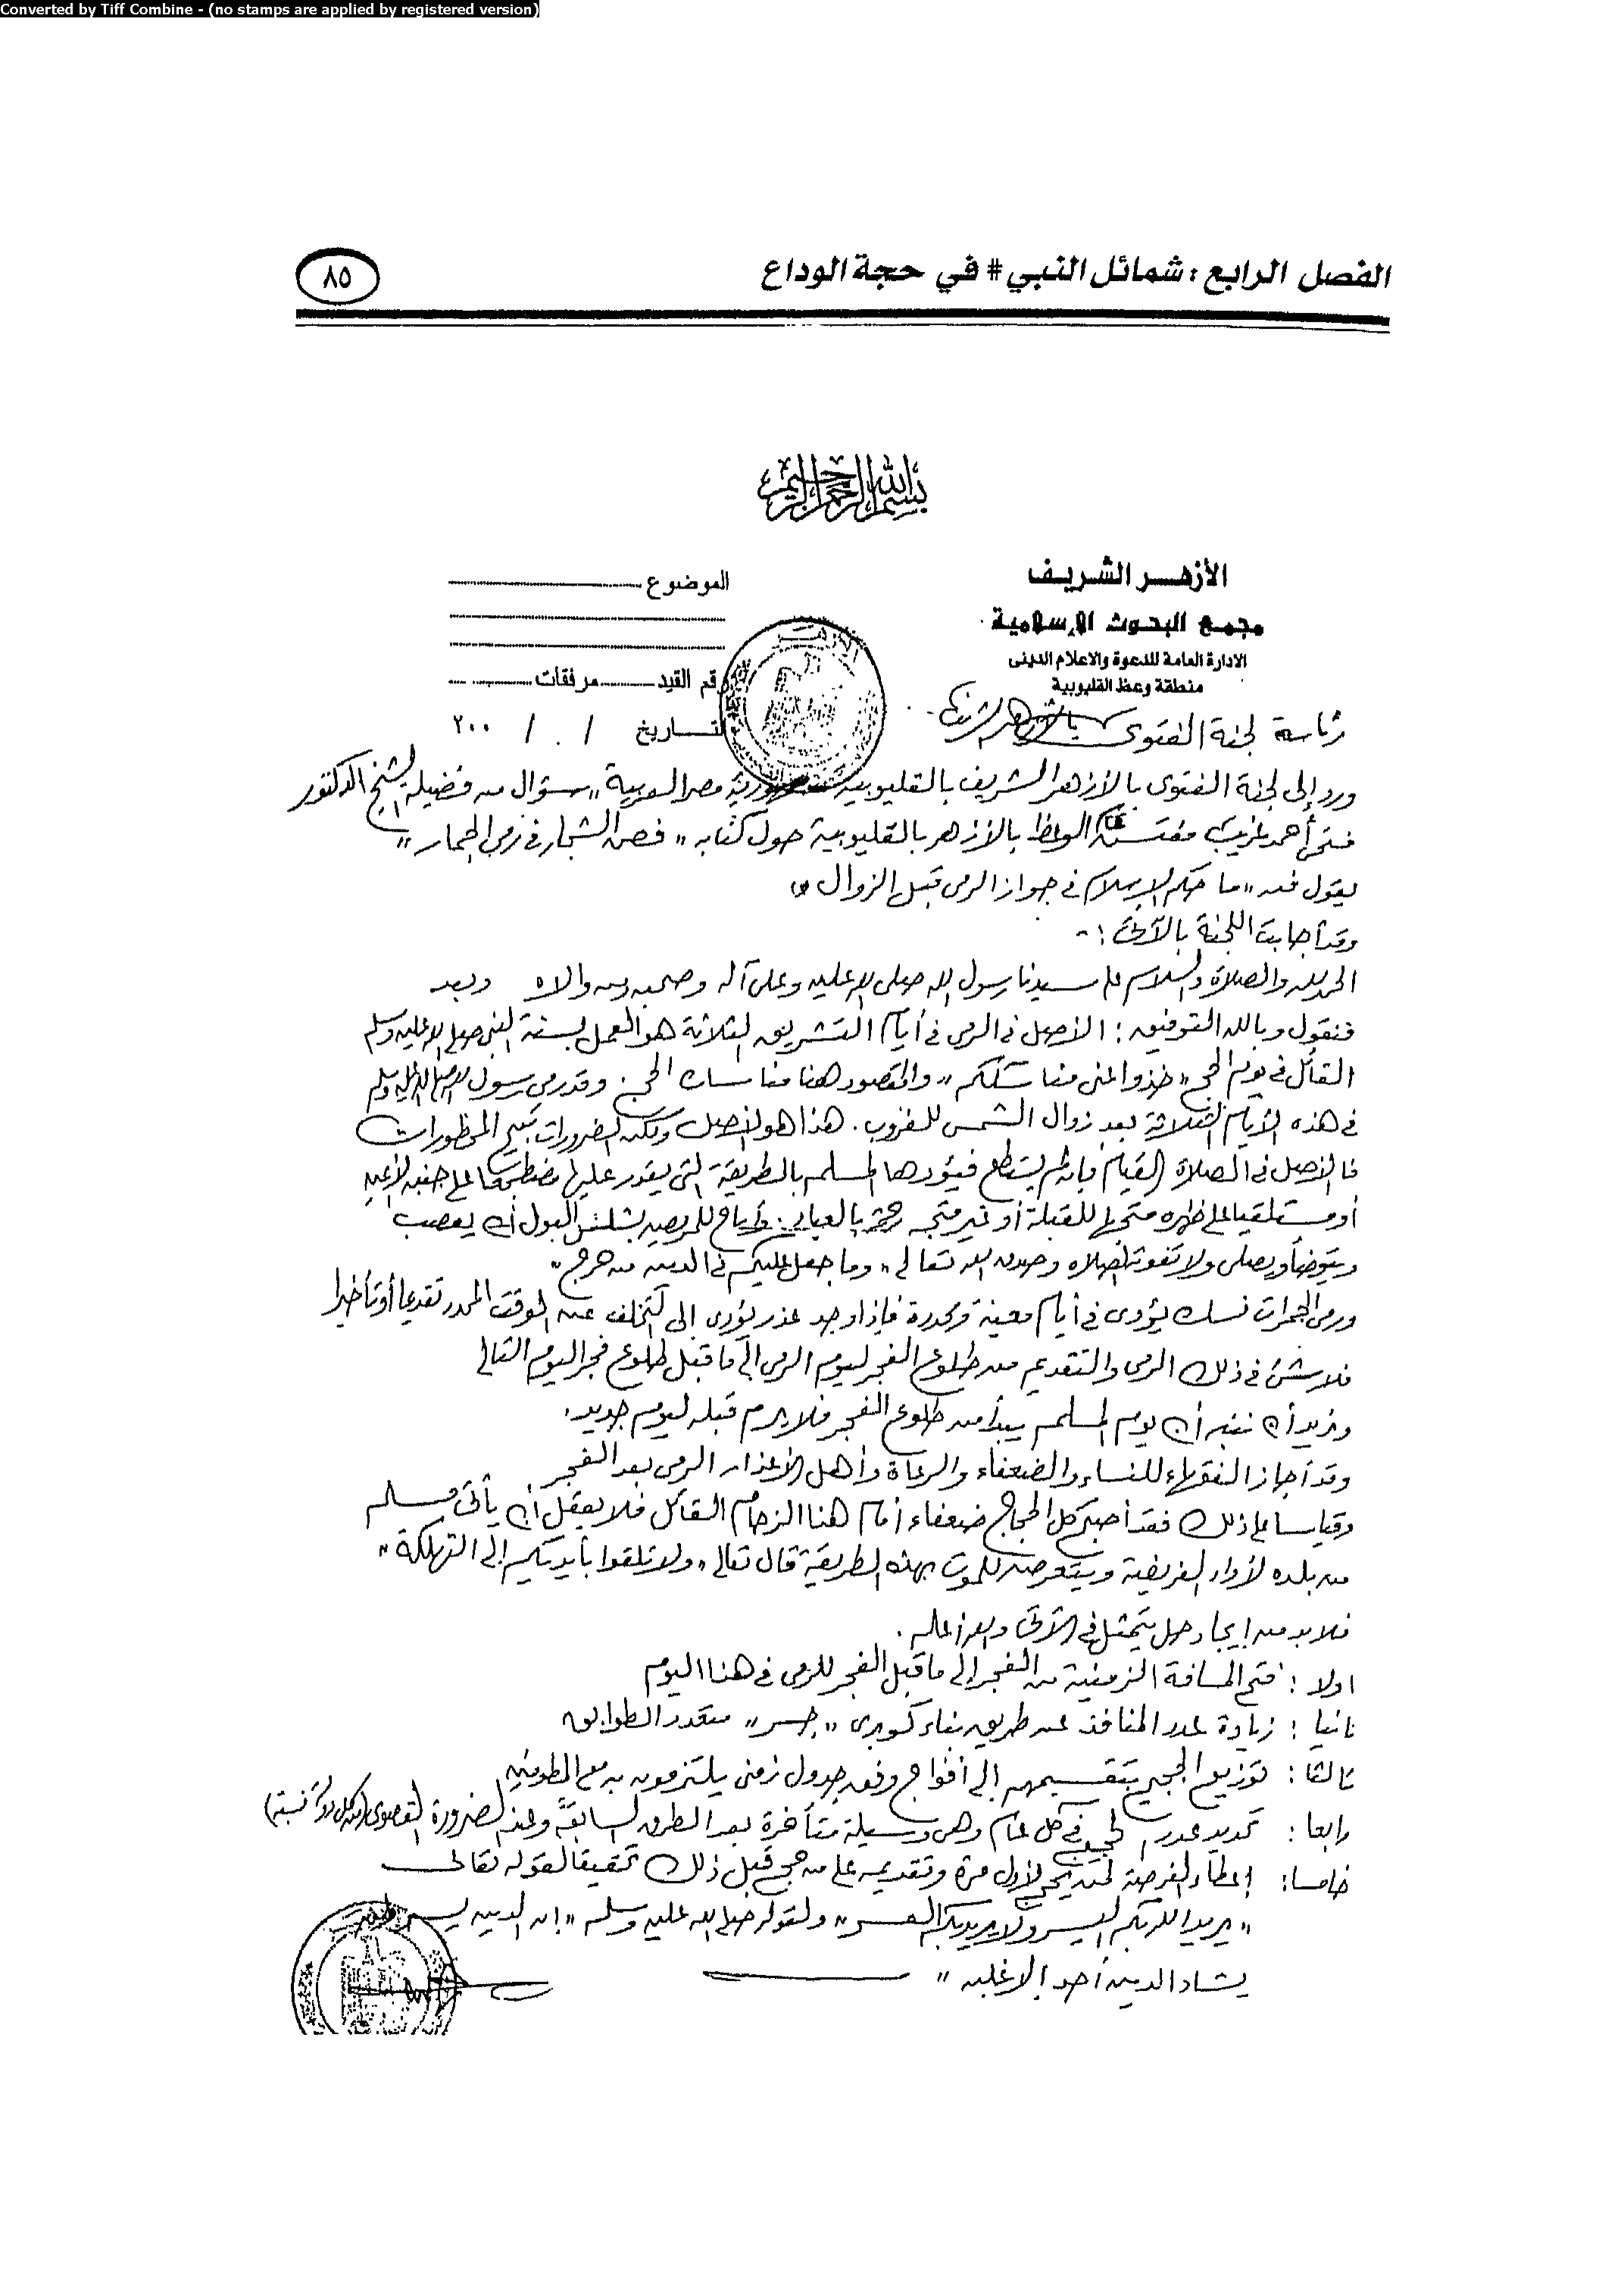 Converted by Tiff Combine - (no stamps are applied by registered version)
الفصل الرابع : شمائل النبي # في حجة الوداع
٨٥
بسم الله الرحمن الرحيم
الأزهر الشريف
مجمع البحوث الإسلامية
الادارة العامة للدعوة والاعلام الدينى
منطقة وعظ القليوبية
الموضوع
رقم القيد مرفقات
التاريخ / / ٢٠٠
رئاسة لجنة الفتوى بالأزهر الشريف
ورد إلى لجنة الفتوى بالأزهر الشريف بالقليوبية جمهورية مصر العربية " سؤال من فضيلة الشيخ الدكتور
فتحى أحمد مفتش الوعظ بالأزهر بالقليوبية حول كتابه " فصل الشجار فى رمى الجمار "
يقول فيه " ما حكم الإسلام فى جواز الرمى قبل الزوال "
وقد أجابت اللجنة بالآتى :-
الحمد لله والصلاة والسلام على سيدنا رسول الله صلى الله عليه وعلى آله وصحبه ومن والاه وبعد
فنقول وبالله التوفيق : الأصل فى الرمى فى أيام التشريق الثلاثة هو العمل بسنة النبى صلى الله عليه وسلم
القائل فى يوم الحج " خذوا عنى مناسككم " والمقصود هنا مناسك الحج . وقد رمى رسول الله صلى الله عليه وسلم
فى هذه الأيام الثلاثة بعد زوال الشمس للغروب . هذا هو الأصل ولكن الضرورات تبيح المحظورات
فالأصل فى الصلاة القيام فإن لم يستطع فيؤديها المسلم بالطريقة التى يقدر عليها مضطجعا على جنبه الأيمن
أو مستلقيا على ظهره متجها للقبلة أو غير متجه رحمة بالعباد . وأباح للمريض بسلس البول أن يعصب
ويتوضأ ويصلى ولا تفوته الصلاه وصدق الله تعالى " وما جعل عليكم فى الدين من حرج "
ورمى الجمرات نسك يؤدى فى أيام معينة ومحددة فإذا وجد عذر يؤدى إلى التخلف عن الوقت المحدد تقديما أو تأخيرا
فلا شئ فى ذلك الرمى والتقديم من طلوع الفجر ليوم الرمى إلى ما قبل طلوع فجر اليوم التالى
ونريد أن ننبه أن يوم المسلم يبدأ من طلوع الفجر فلا يرم قبله ليوم جديد .
وقد أجاز الفقهاء للنساء والضعفاء والرعاة وأهل الأعذار الرمى بعد الفجر
وقياسا على ذلك فقد أصبح كل الحجاج ضعفاء أمام هذا الزحام القاتل فلا يعقل أن يأتى مسلم
من بلده لأداء الفريضة ويتعرض للموت بهذه الطريقة قال تعالى " ولا تلقوا بأيديكم إلى التهلكة "
فلا بد من إيجاد حل يتمثل فى الآتى والله أعلم .
اولا : فتح المسافة الزمنية من الفجر إلى ما قبل الفجر للرمى فى هذا اليوم
ثانيا : زيادة عدد المنافذ عن طريق بناء كوبرى " جسر " متعدد الطوابق
ثالثا : توزيع الحجيج بتقسيمهم إلى أفواج وفق جدول زمنى يلتزمون به مع المطوفين
رابعا : تحديد عدد الحجيج فى كل عام وهى وسيلة متأخرة بعد الطرق السابقة وعند الضرورة القصوى (من كل دولة نسبة)
خامسا : إعطاء الفرصة لمن يحج لأول مرة وتقديمه على من حج قبل ذلك تحقيقا لقوله تعالى
" يريد الله بكم اليسر ولا يريد بكم العسر " ولقوله صلى الله عليه وسلم " إن الدين يسر ولن
يشاد الدين أحد إلا غلبه "